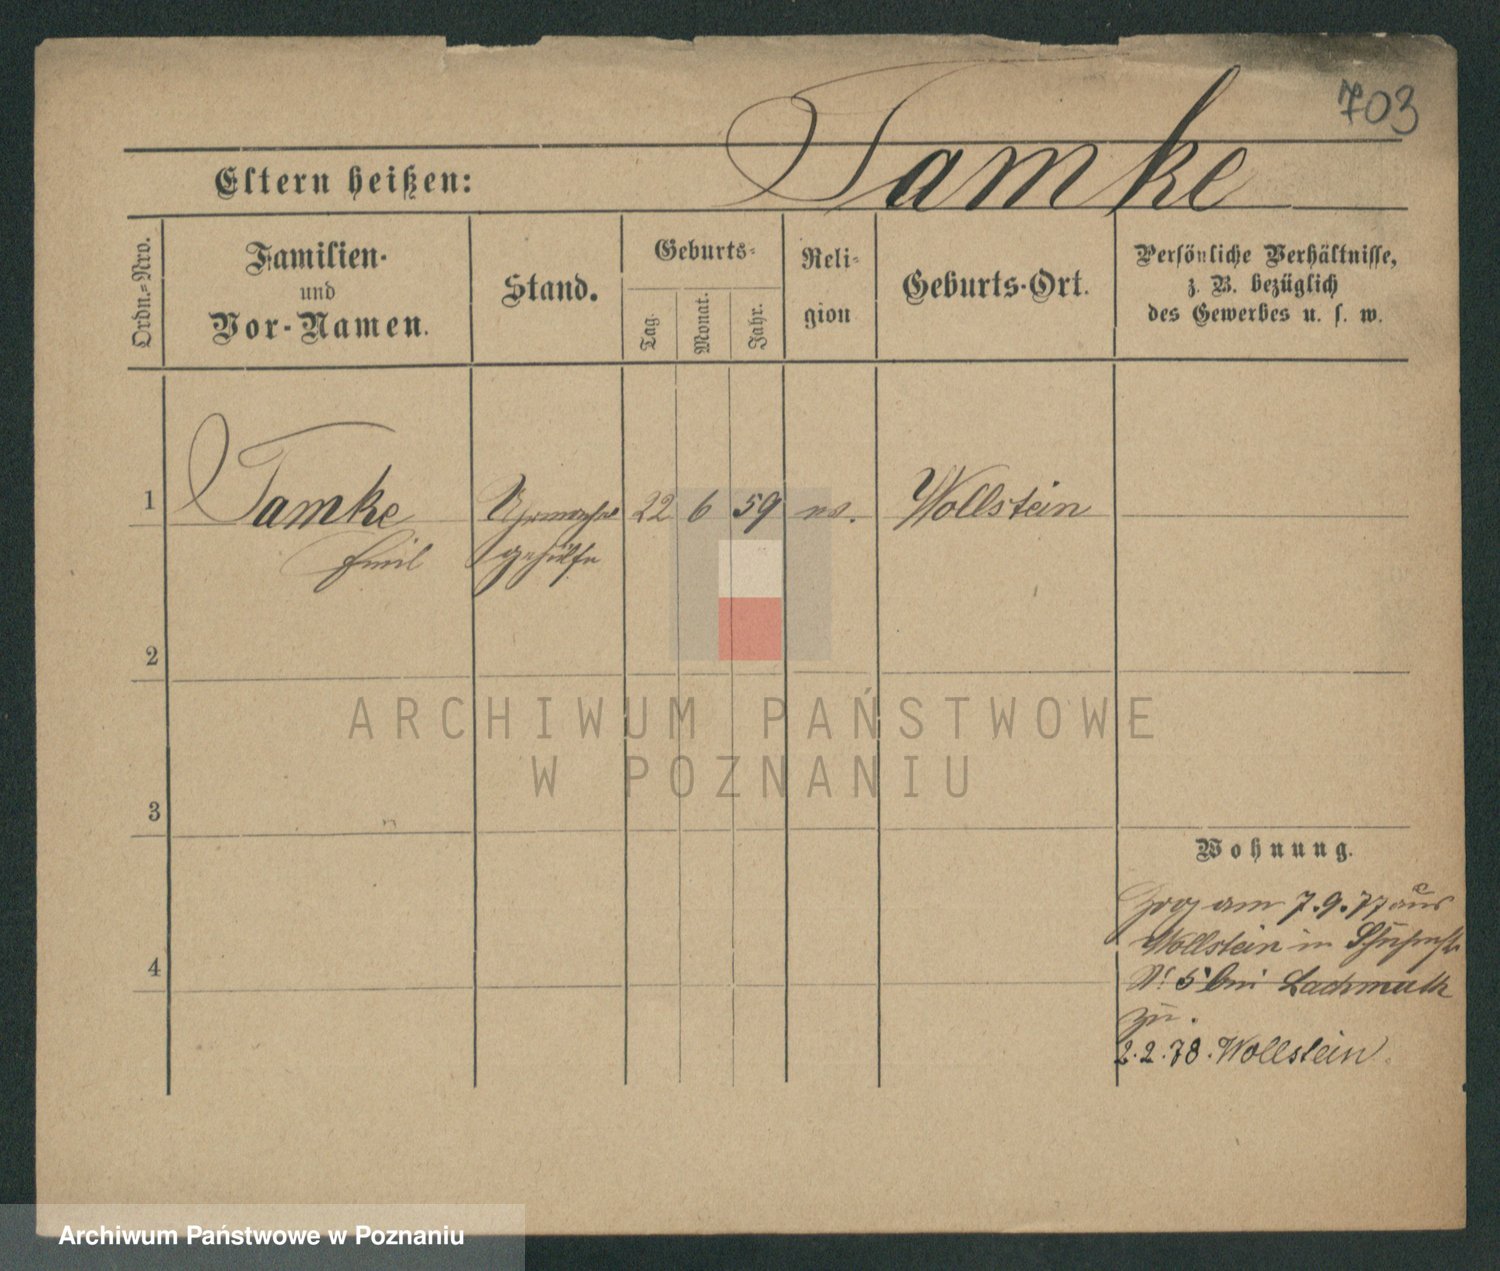 703
Tamke
Eltern heißen:
Ordn.=Nro.
Familien-
und
Vor-Namen.
Stand.
Geburts-
Tag.
Monat.
Jahr.
Reli-
gion
Geburts-Ort.
Persönliche Verhältnisse,
z. B. bezüglich
des Gewerbes u. s. w.
1 Tamke Uhrmacher 22 6 59 ev. Wollstein
Emil gehülfe
2
ARCHIWUM PAŃSTWOWE
W POZNANIU
3
Wohnung.
Zog am 7.9.77 aus
Wollstein in
4
No 5 bei Lachmuth
zu.
2.2.78. Wollstein
Archiwum Państwowe w Poznaniu